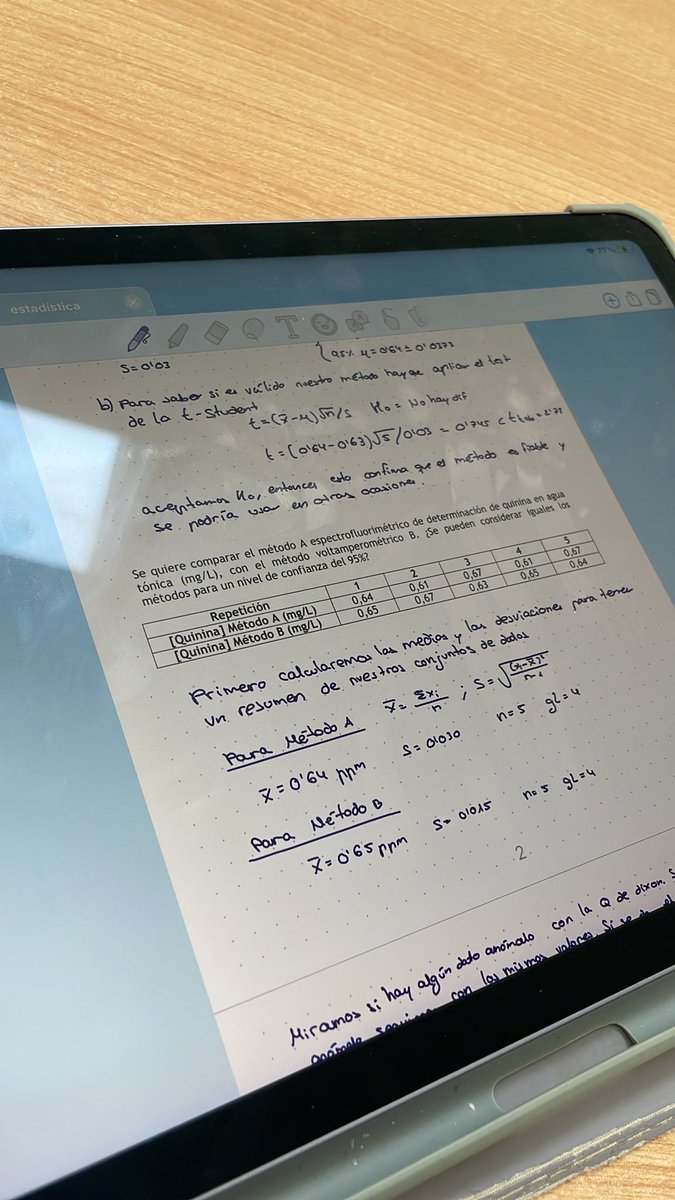 77%
estadística
S=0'03
95% μ=0'64 ± 0'0373
b) Para saber si es válido nuestro método hay que aplicar el test
de la t-student
t=(x̄-μ)√n/s H₀ = No hay dif
t=(0'64-0'63)√5/0'03 = 0'745 < t tab = 2'78
aceptamos H₀, entonces esto confirma que el método es fiable y
se podría usar en otras ocasiones.
Se quiere comparar el método A espectrofluorimétrico de determinación de quinina en agua
tónica (mg/L), con el método voltamperométrico B. ¿Se pueden considerar iguales los
métodos para un nivel de confianza del 95%?
Repetición 1 2 3 4 5
[Quinina] Método A (mg/L) 0,64 0,61 0,67 0,61 0,67
[Quinina] Método B (mg/L) 0,65 0,67 0,63 0,65 0,64
Primero calcularemos las medias y las desviaciones para tener
un resumen de nuestros conjuntos de datos
Para Método A x̄ = Σxi/n ; S=√(xi-x̄)²/n-1
x̄=0'64 ppm S=0'030 n=5 gL=4
Para Método B
x̄=0'65 ppm S=0'015 n=5 gL=4
2
Miramos si hay algún dato anómalo con la Q de dixon. S
anómalo seguimos con los mismos valores. Si se da el